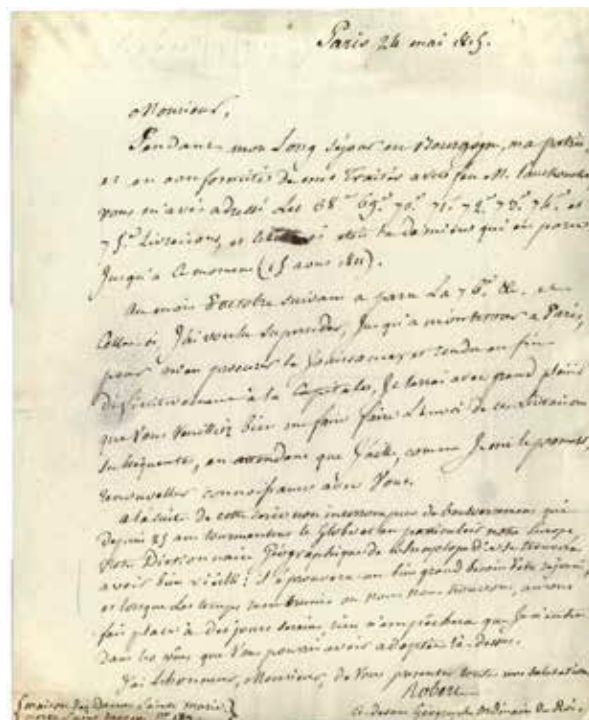 Paris 24 mai 1815.
Monsieur,
Pendant mon long séjour en Bourgogne, ma patrie,
et en conformité de mes traités avec feu M. Panckoucke
vous m'avés adressé les 68e 69e 70e 71e 72e 73e 74e et
75e Livraisons, et
jusqu'à ce moment (15 aout 1811).
Au mois d'octobre suivant a paru la 76e &c. et
celle-ci, j'ai voulu suspendre, jusqu'à mon retour à Paris,
pour m'en procurer la jouissance, et rendu enfin
à la Capitale, je verrai avec grand plaisir
que vous veuilliez bien me faire faire l'envoi de ces Livraisons
subséquentes, en attendant que j'aille, comme je me le promets,
renouveller connoissance avec vous.
à la suite de cette série non interrompue de bouleversemens qui
depuis 25 ans tourmentent le Globe et en particulier notre Europe
votre Dictionnaire Géographique de l'encyclopédie se trouve
avoir bien vieilli: il éprouvera un bien grand besoin d'être rajeuni,
et lorsque les temps où nous nous trouvons, auront
fait place à des jours sereins, rien n'empêchera que je n'entre
dans les vues que vous pourriez avoir adoptées là-dessus.
J'ai l'honneur, Monsieur, de vous présenter toutes mes salutations
Robert
Géographe ordinaire du Roi.
maison des Dames Sainte marie